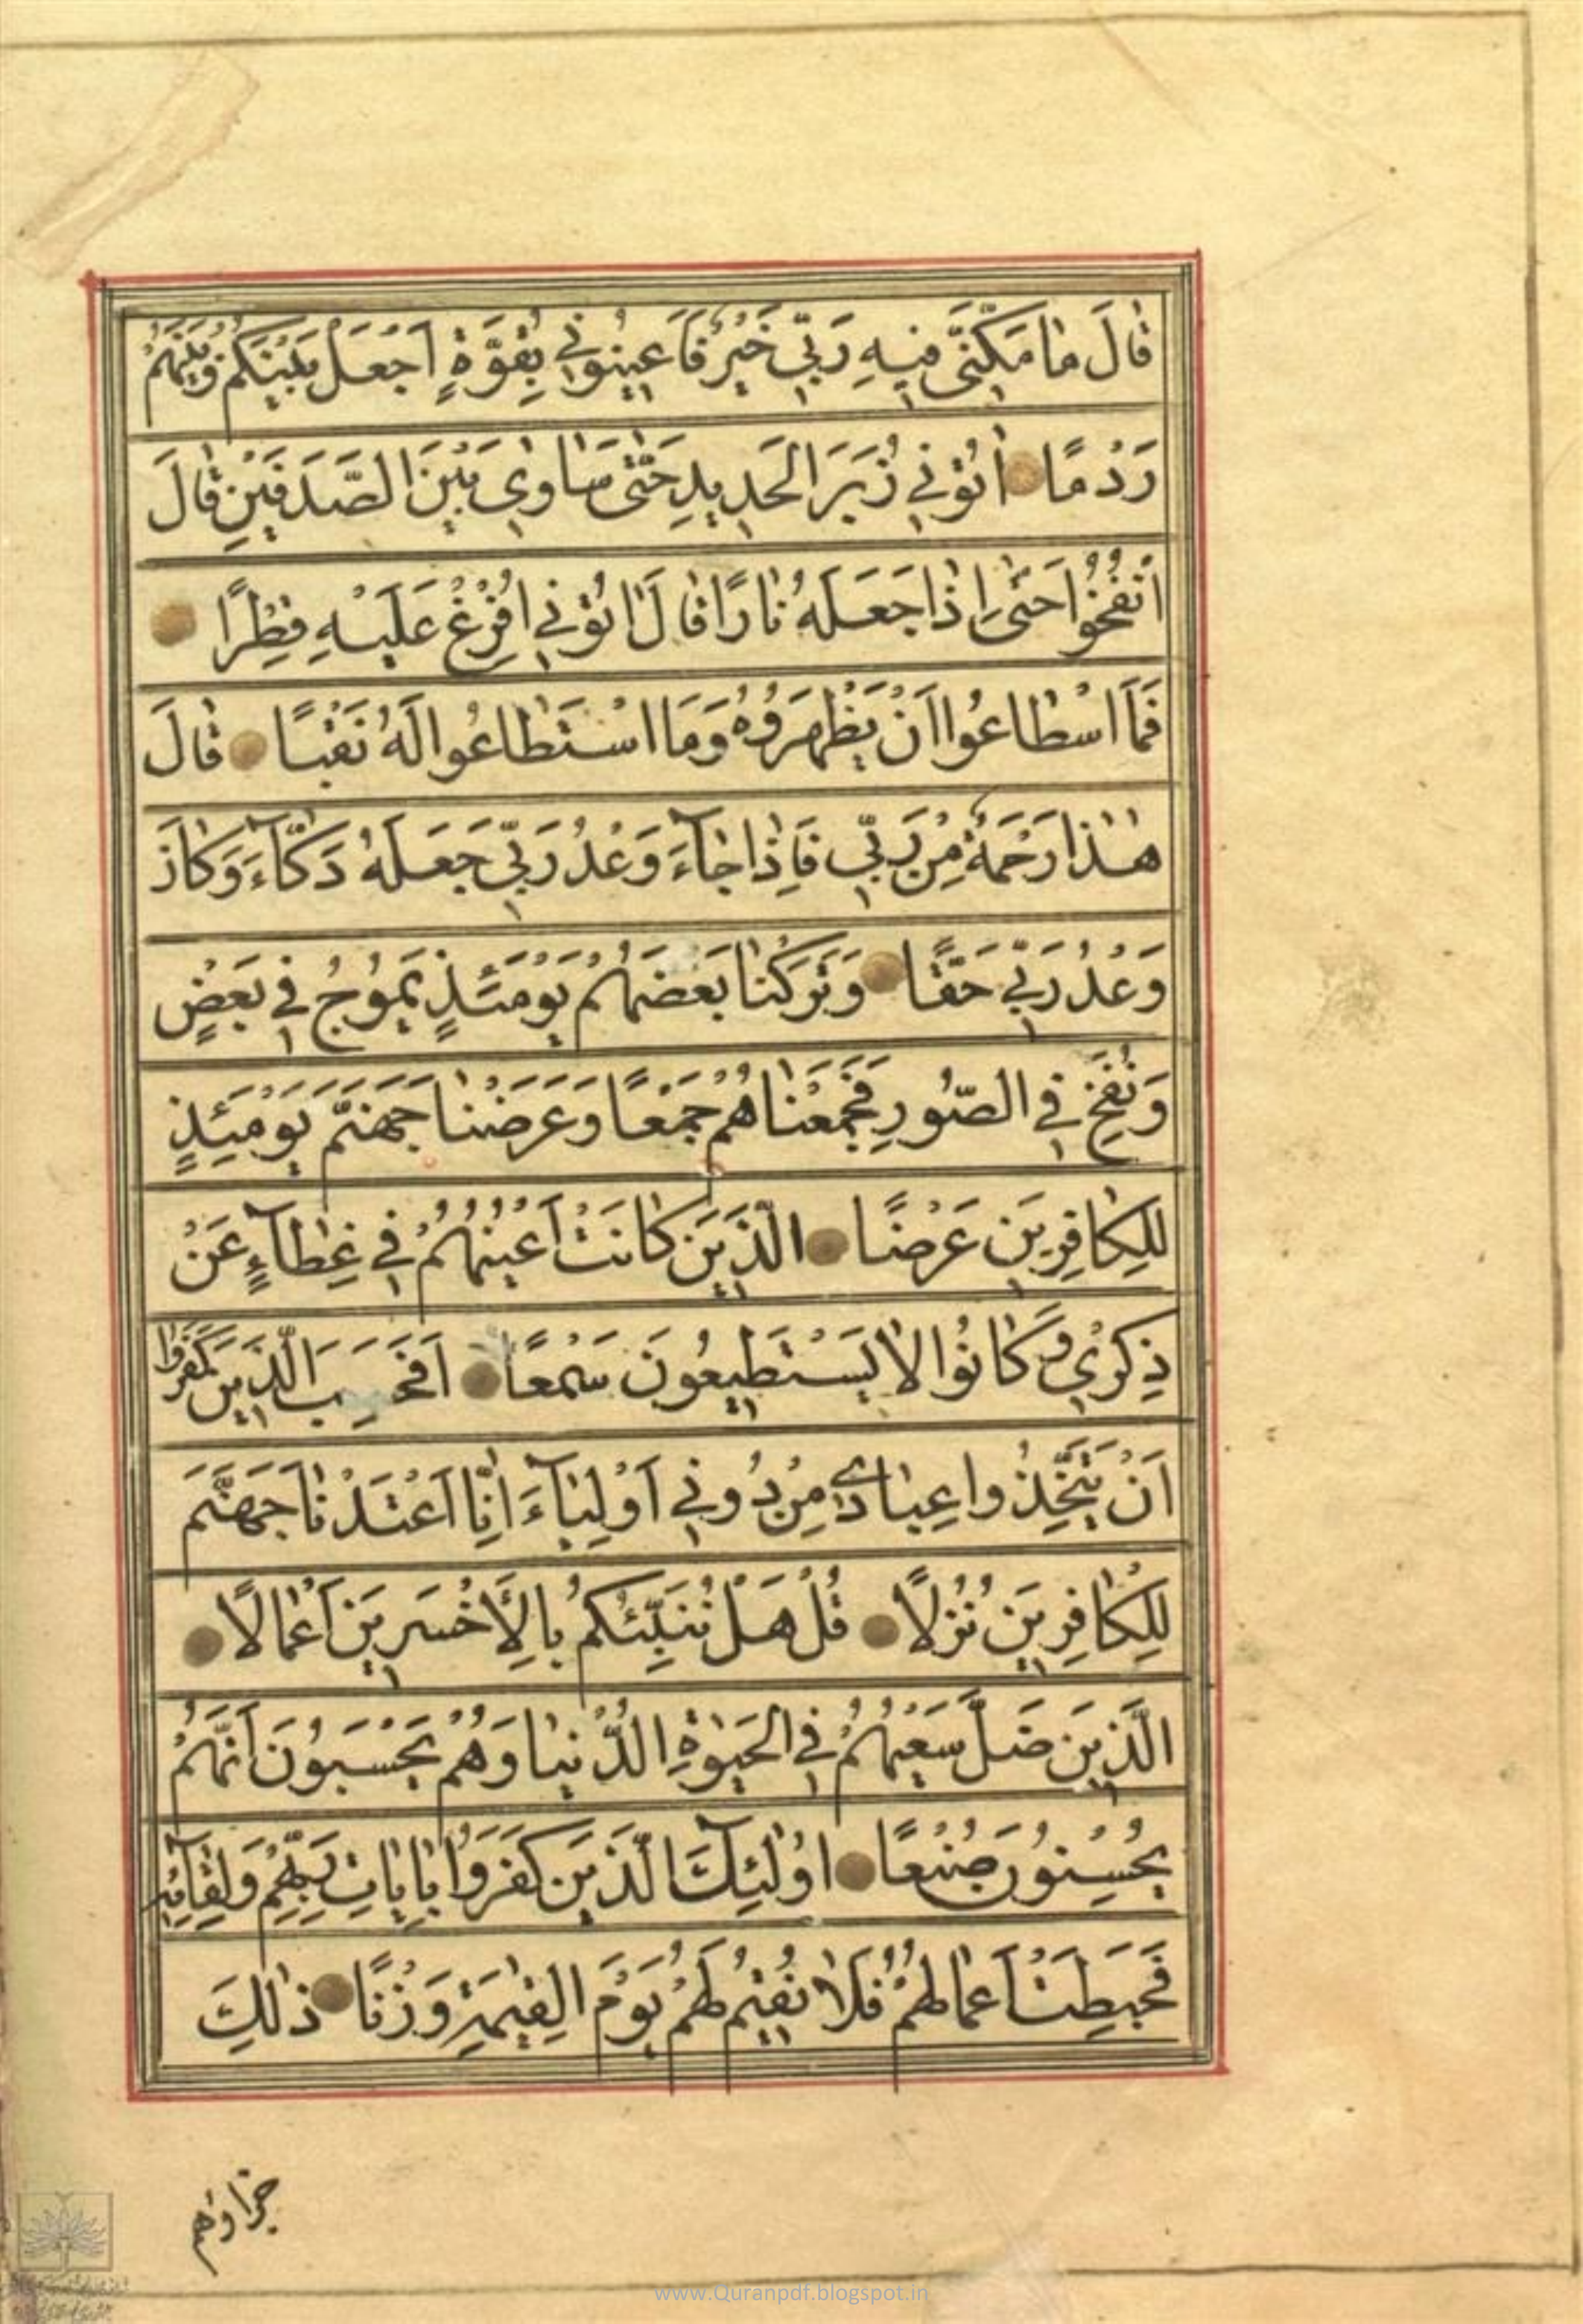 قَالَ مَا مَكَّنَّى فِيهِ رَبِّي خَيْرٌ فَأَعِينُونِي بِقُوَّةٍ اَجْعَلْ بَيْنَكُمْ وَبَيْنَهُمْ
رَدْمًا اٰتُونِي زُبَرَ الْحَدِيدِ حَتّٰى سَاوٰي بَيْنَ الصَّدَفَيْنِ قَالَ
انْفُخُوا حَتّٰى اِذَا جَعَلَهُ نَارًا قَالَ اٰتُونِي اُفْرِغْ عَلَيْهِ قِطْرًا
فَمَا اسْطَاعُوا اَنْ يَظْهَرُوهُ وَمَا اسْتَطَاعُوا لَهُ نَقْبًا قَالَ
هٰذَا رَحْمَةٌ مِنْ رَبِّي فَاِذَا جَآءَ وَعْدُ رَبِّي جَعَلَهُ دَكَّآءَ وَكَانَ
وَعْدُ رَبِّي حَقًّا وَتَرَكْنَا بَعْضَهُمْ يَوْمَئِذٍ يَمُوجُ فِي بَعْضٍ
وَنُفِخَ فِي الصُّورِ فَجَمَعْنَاهُمْ جَمْعًا وَعَرَضْنَا جَهَنَّمَ يَوْمَئِذٍ
لِلْكَافِرِينَ عَرْضًا الَّذِينَ كَانَتْ اَعْيُنُهُمْ فِي غِطَآءٍ عَنْ
ذِكْرِي وَكَانُوا لَا يَسْتَطِيعُونَ سَمْعًا اَفَحَسِبَ الَّذِينَ كَفَرُوا
اَنْ يَتَّخِذُوا عِبَادِي مِنْ دُونِي اَوْلِيَآءَ اِنَّا اَعْتَدْنَا جَهَنَّمَ
لِلْكَافِرِينَ نُزُلًا قُلْ هَلْ نُنَبِّئُكُمْ بِالْأَخْسَرِينَ اَعْمَالًا
الَّذِينَ ضَلَّ سَعْيُهُمْ فِي الْحَيٰوةِ الدُّنْيَا وَهُمْ يَحْسَبُونَ اَنَّهُمْ
يُحْسِنُونَ صُنْعًا اُولٰئِكَ الَّذِينَ كَفَرُوا بِاٰيَاتِ رَبِّهِمْ وَلِقَآئِهِ
فَحَبِطَتْ اَعْمَالُهُمْ فَلَا نُقِيمُ لَهُمْ يَوْمَ الْقِيٰمَةِ وَزْنًا ذٰلِكَ
جزاؤهم
www.Quranpdf.blogspot.in